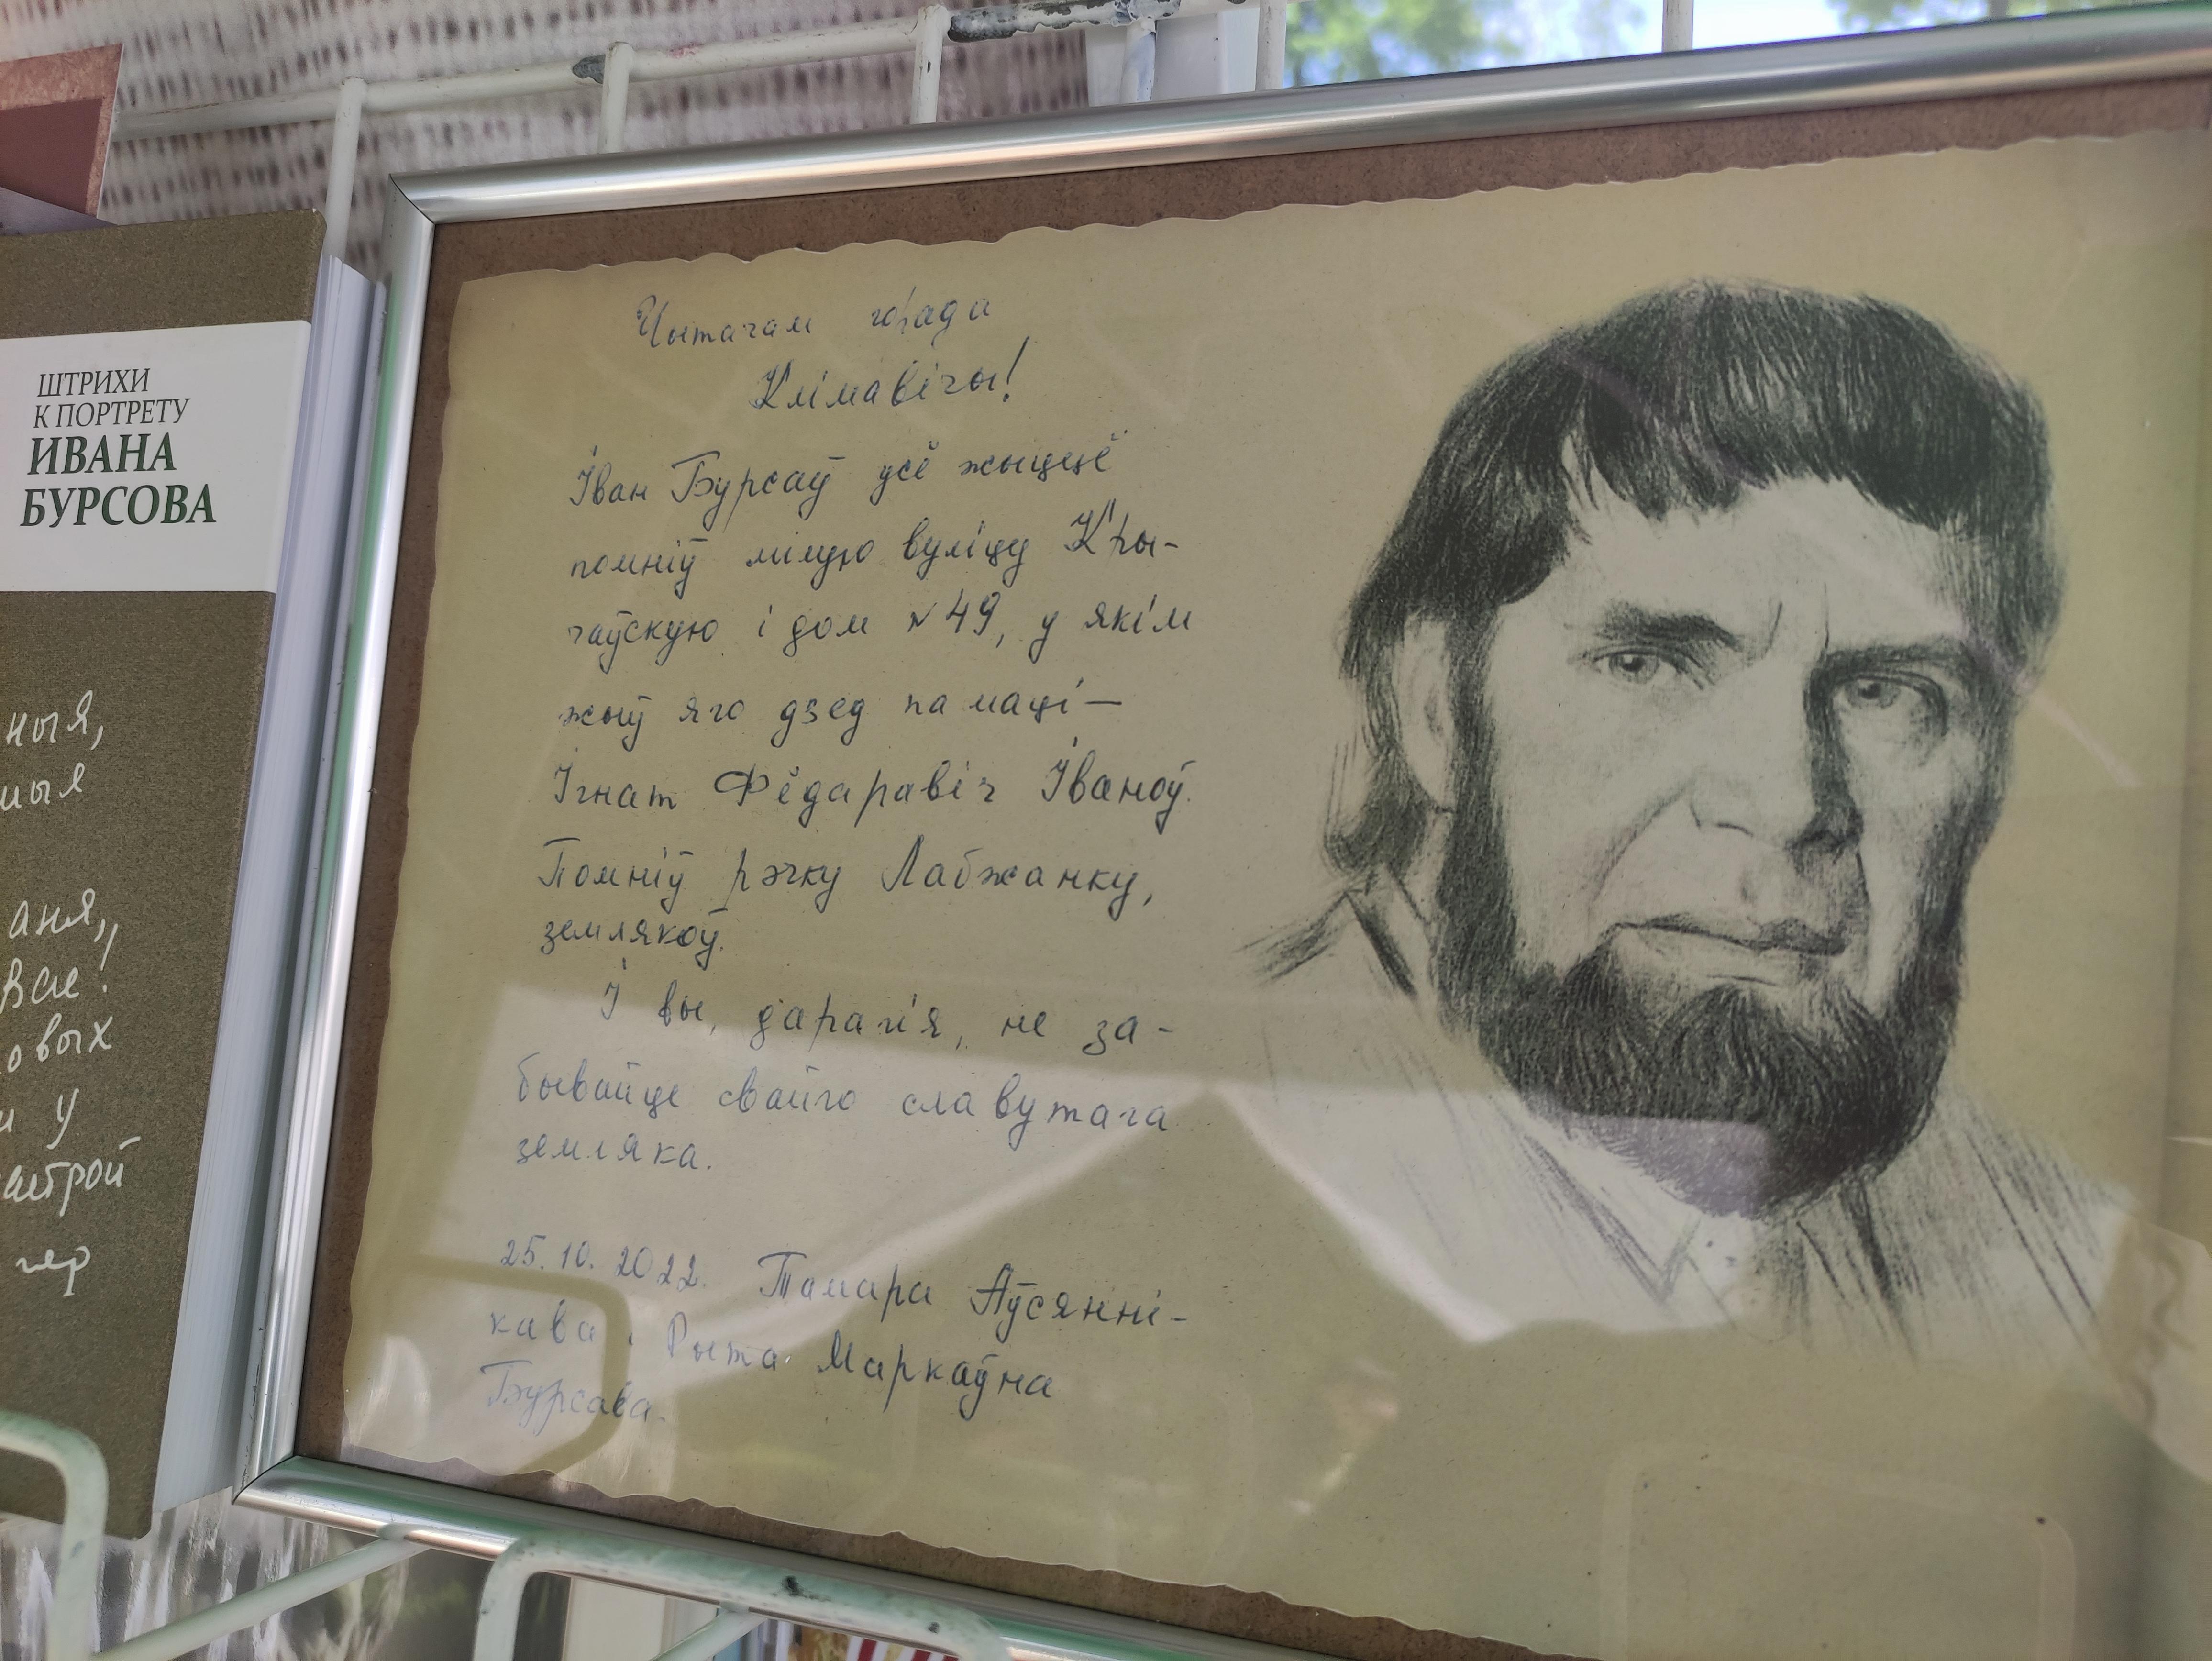 ШТРИХИ
К ПОРТРЕТУ
ИВАНА
БУРСОВА
ныя,
мыя
аня,
вае!
овых
у
астрой
чер
Чытачам горада
Клімавічы!
Іван Бурсаў усё жыццё
помніў мілую вуліцу Кры-
чаўскую і дом №49, у якім
жыў яго дзед па маці —
Ігнат Фёдаравіч Іваноў.
Помніў рэчку Лабжанку,
землякоў.
І вы, дарагія, не за-
бывайце свайго славутага
земляка.
25.10.2022. Тамара Аўсянні-
кава і Рыта Маркаўна
Бурсава.